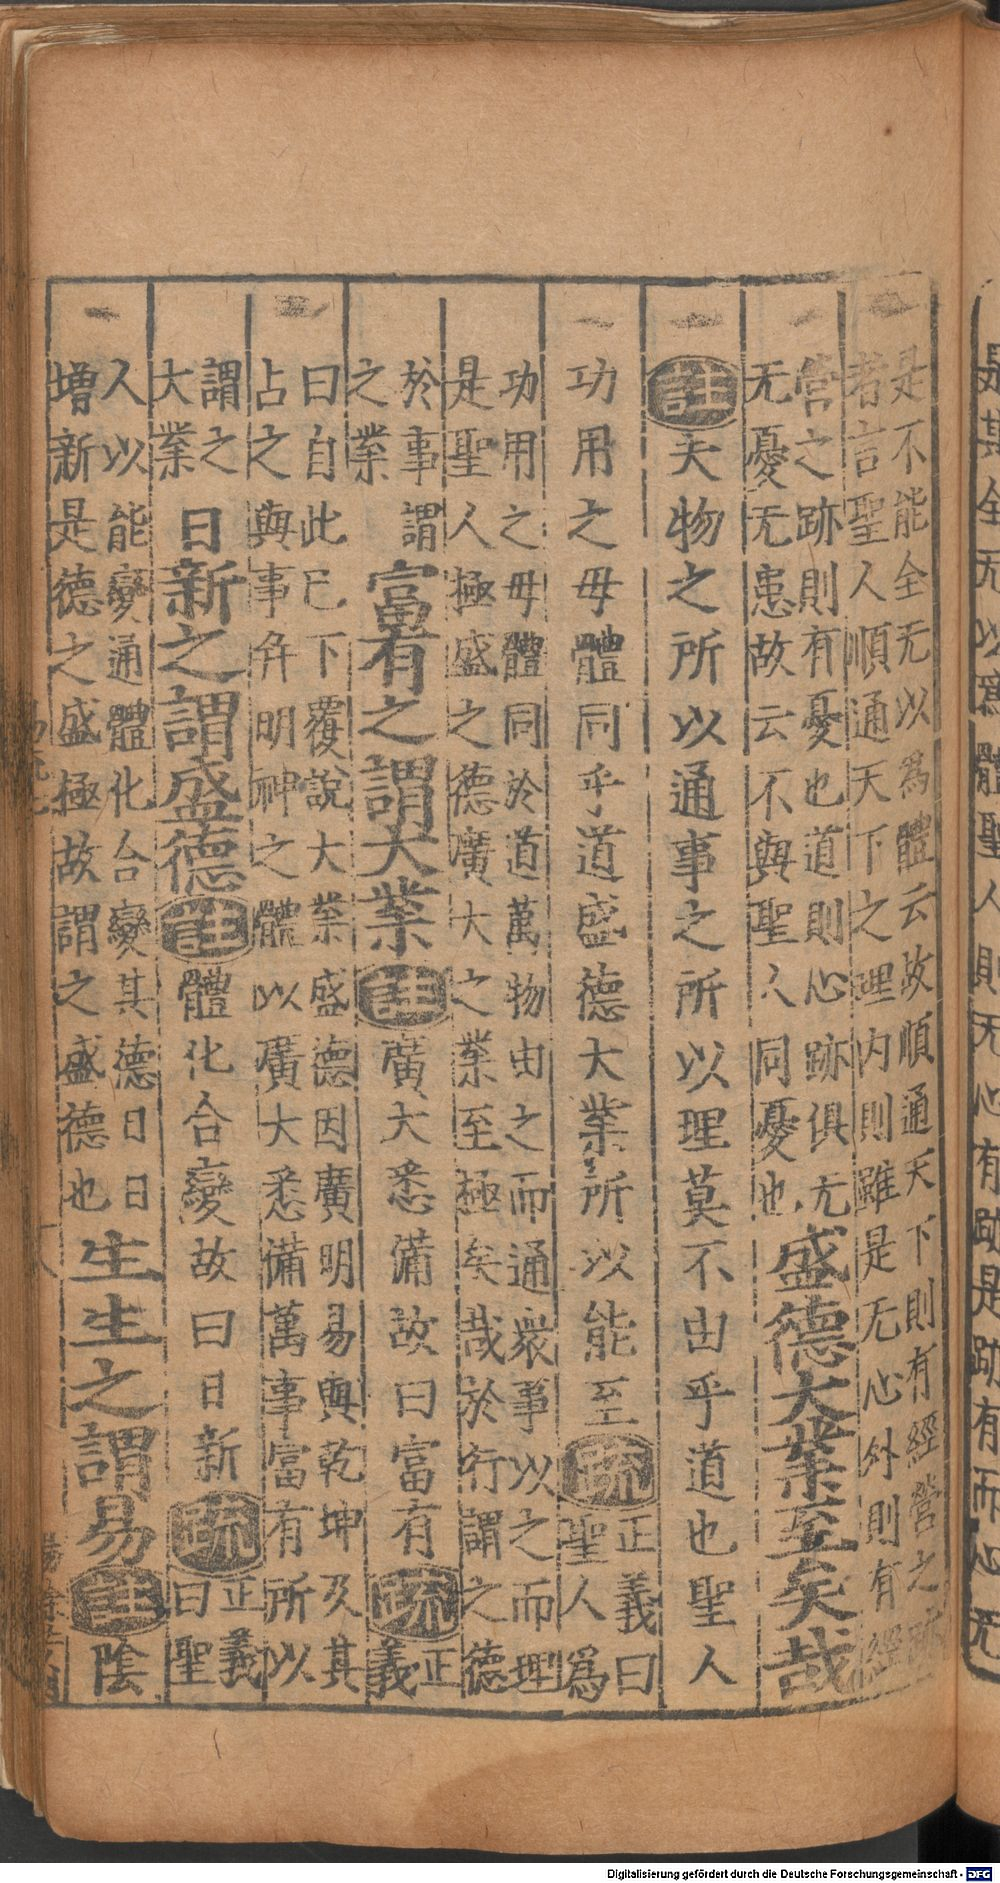 是不能全无以爲體云故順通天下則有經營之跡
者言聖人順通天下之理内則雖是无心外則有經
營之跡則有憂也道則心跡俱无
无憂无患故云不與聖人同憂也
盛德大業至矣哉
註夫物之所以通事之所以理莫不由乎道也聖人
功用之母體同乎道盛德大業所以能至疏
正義曰
聖人爲
功用之母體同於道萬物由之而通衆事以之而理
是聖人極盛之德廣大之業至極矣哉於行謂之德
於事謂
之業
富有之謂大業註廣大悉備故曰富有疏
正
義
曰自此已下覆說大業盛德因廣明易與乾坤及其
占之與事并明神之體以廣大悉備萬事富有所以
謂之
大業
日新之謂盛德註體化合變故曰日新疏
正義
曰聖
人以能變通體化合變其德日日
增新是德之盛極故謂之盛德也
生生之謂易註陰
Digitalisierung gefördert durch die Deutsche Forschungsgemeinschaft - DFG